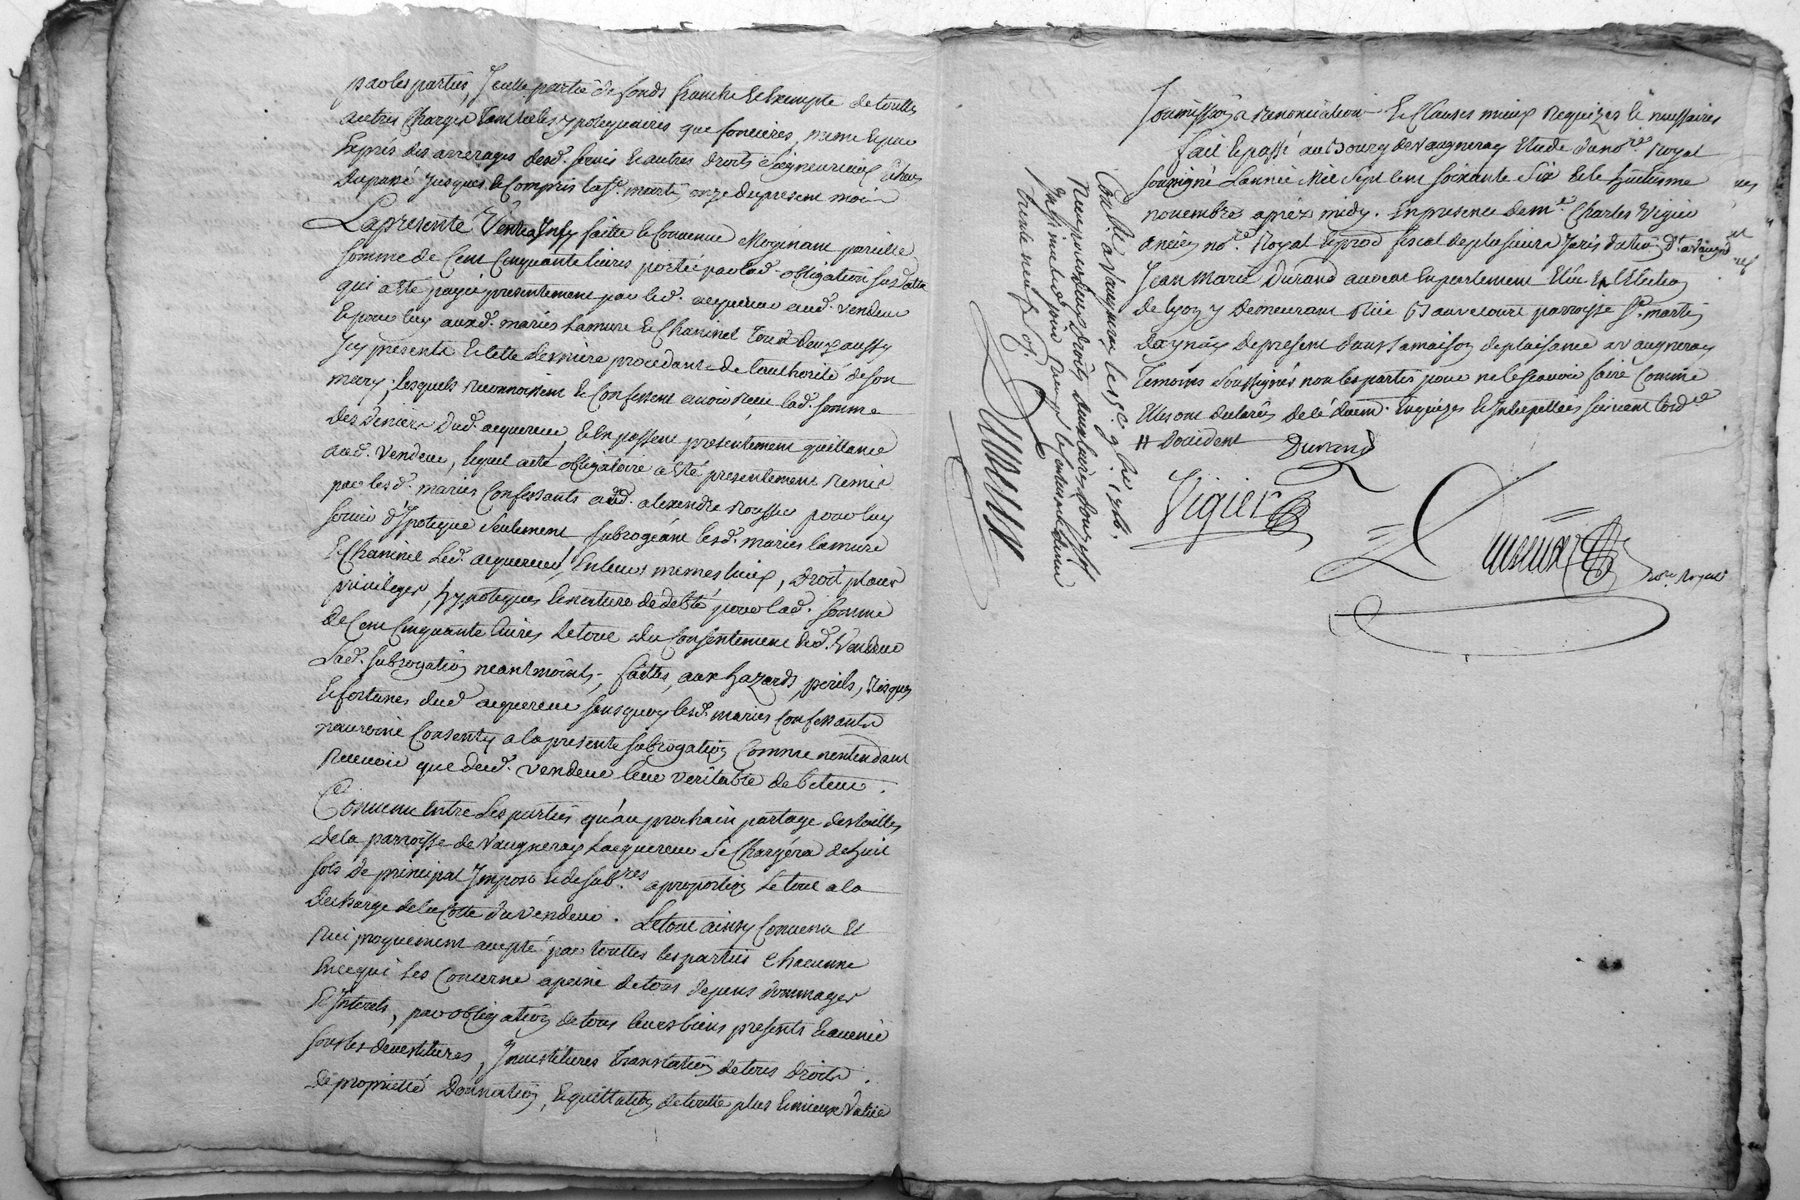 par les parties, Jcelle partie de fonds franche & Exempte de touttes
autres Charges tant ypotequaires que foncieres, meme
Expres des arrerages desd. servis & autres droits Seigneuriaux
du passé jusques & Compris la st. martin onze du present mois
La presente Vente Jnsy faitte & Convenue Moyenant pareille
somme de Cent Cinquante livres portée par lad. obligation susdatte
qui a été payée presentement par led. acquereur aud. Vendeur
& pour luy auxd. mariés Lamure & Chaninel tous deux aussy
Jcy presents & cette derniere procedante de l'authorité de son
mary, lesquels reconnoissent & Confessent avoir receu lad. somme
des deniers dud. acquereur, & En passent presentement quittance
aud. Vendeur, lequel acte obligatoire a été presentement remis
par lesd. mariés Confessants aud. alexandre pour luy
servir d'ypoteque seulement subrogeant lesd. mariés lamure
& Chaninel led. acquereur, En leurs memes lieux, droit, place
privileges, hypoteques & nature de debte pour lad. somme
de Cent Cinquante livres Le tout du Consentement dud. Vendeur
Lad. subrogation neantmoints, faitte, aux hazards, perils, risques
& fortunes dud. acquereur sans quoy lesd. mariés Confessants
n'auroint Consenty a la presente subrogation Comme n'entendant
recevoir que dud. vendeur leur veritable debiteur.
Convenu Entre Les parties qu'au prochain partage des tailles
de la parroisse de Vaugneray L'acquereur se Chargéra de huit
sols de principal Jmposé & de sub.res a proportion Le tout a la
decharge de la Cotte du vendeur. Le tout ainsy Convenu &
reciproquement accepté par touttes les parties Chacunne
En ce qui Les Concerne a peine de tous depens dommages
& Jnterets, par obligation de tous leurs biens presents & avenir
sous les devestitures, Jnvestitures translation de tous droits
de proprietté Donnation, & quittation de toutte plus & mieux value
Soumissions renonciation & Clauses mieux requizes & necessaires
fait & passé au Bourg de Vaugneray Etude du no.re Royal
soussigné L'année Mil Sept Cent soixante Six & le huitieme
novembre apréz midy. En presence de m.e Charles Vigier
ancien no.re Royal & prod fiscal de plusieurs Jurisdictions
Jean Marie Durand avocat En parlement Elû En L'Election
de Lyon y demeurant parroisse St. martin
d'aynay de present dans sa maison de plaisance a vaugneray
temoins Soussignés non les parties pour ne le sçavoir faire Comme
Elles ont declarés de ce duem. Enquizes & Jnterpellées suivant l'ord.ce
Durand
Vigier
no.re Royal
Con.lé a Vaugneray le 15e 9bre 1766.